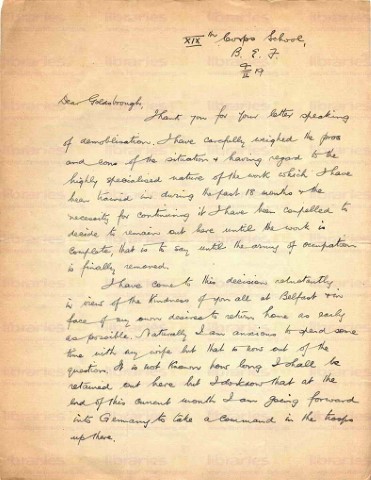 XIXth Corps School,
B. E. F.
9/II 19
Dear Goldsbrough,
Thank you for your letter speaking
of demobilisation. I have carefully weighed the pros
and cons of the situation & having regard to the
highly specialised nature of the work which I have
been trained in during the past 18 months & the
necessity for continuing it I have been compelled to
decide to remain out here until the work is
completed, that is to say until the army of occupation
is finally removed.
I have come to this decision reluctantly
in view of the kindness of you all at Belfast & in
face of my own desires to return home as early
as possible. Naturally I am anxious to spend some
time with my wife but that is now out of the
question. It is not known how long I shall be
retained out here but I do know that at the
end of this current month I am going forward
into Germany to take a command in the troops
up there.